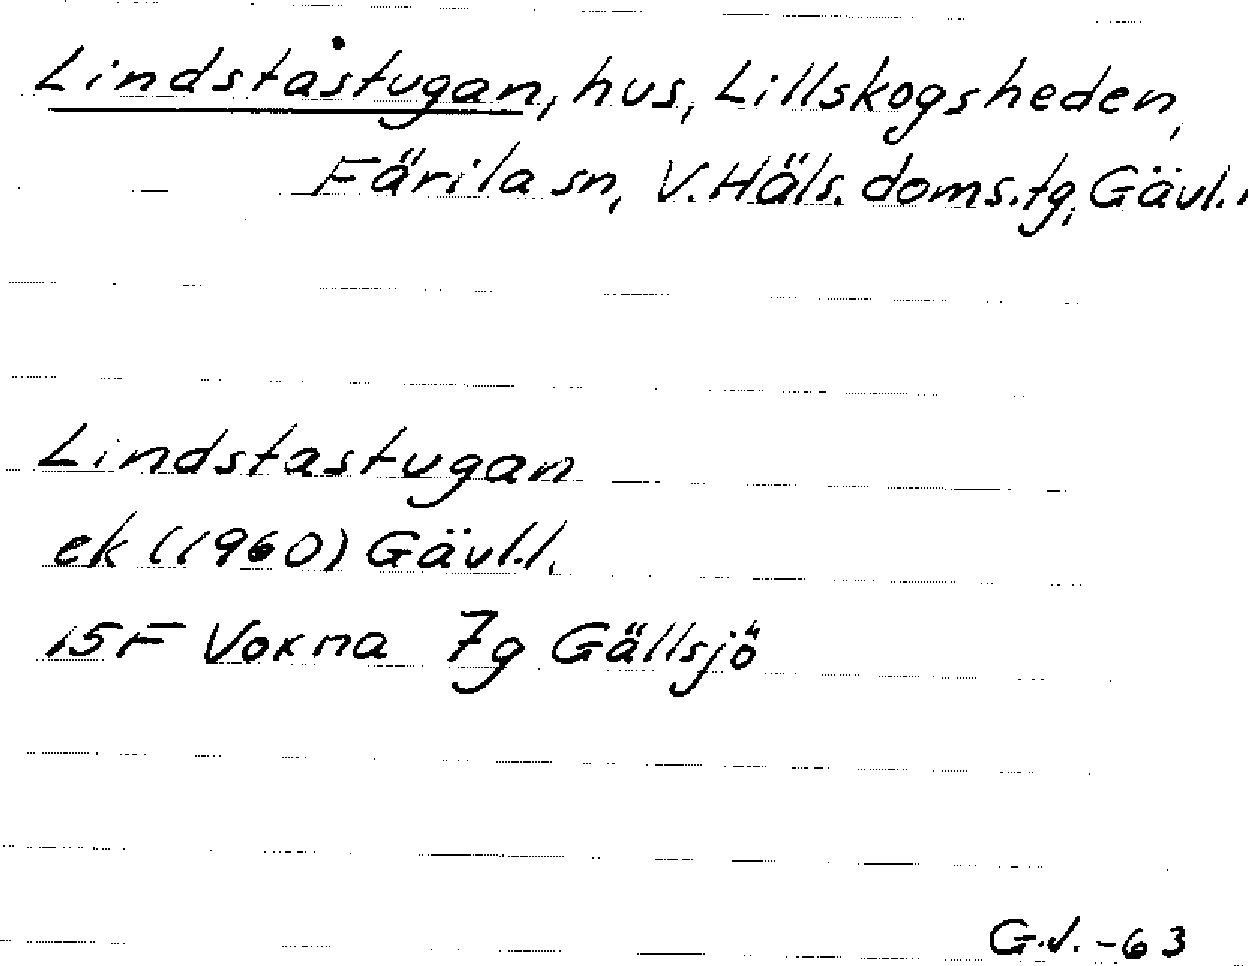 Lindstastugan, hus, Lillskogsheden,
Färila sn, V. Häls. doms.tg, Gävl.l
Lindstastugan
ek (1960) Gävl.l.
15F Voxna 7g Gällsjö
G.J. -63